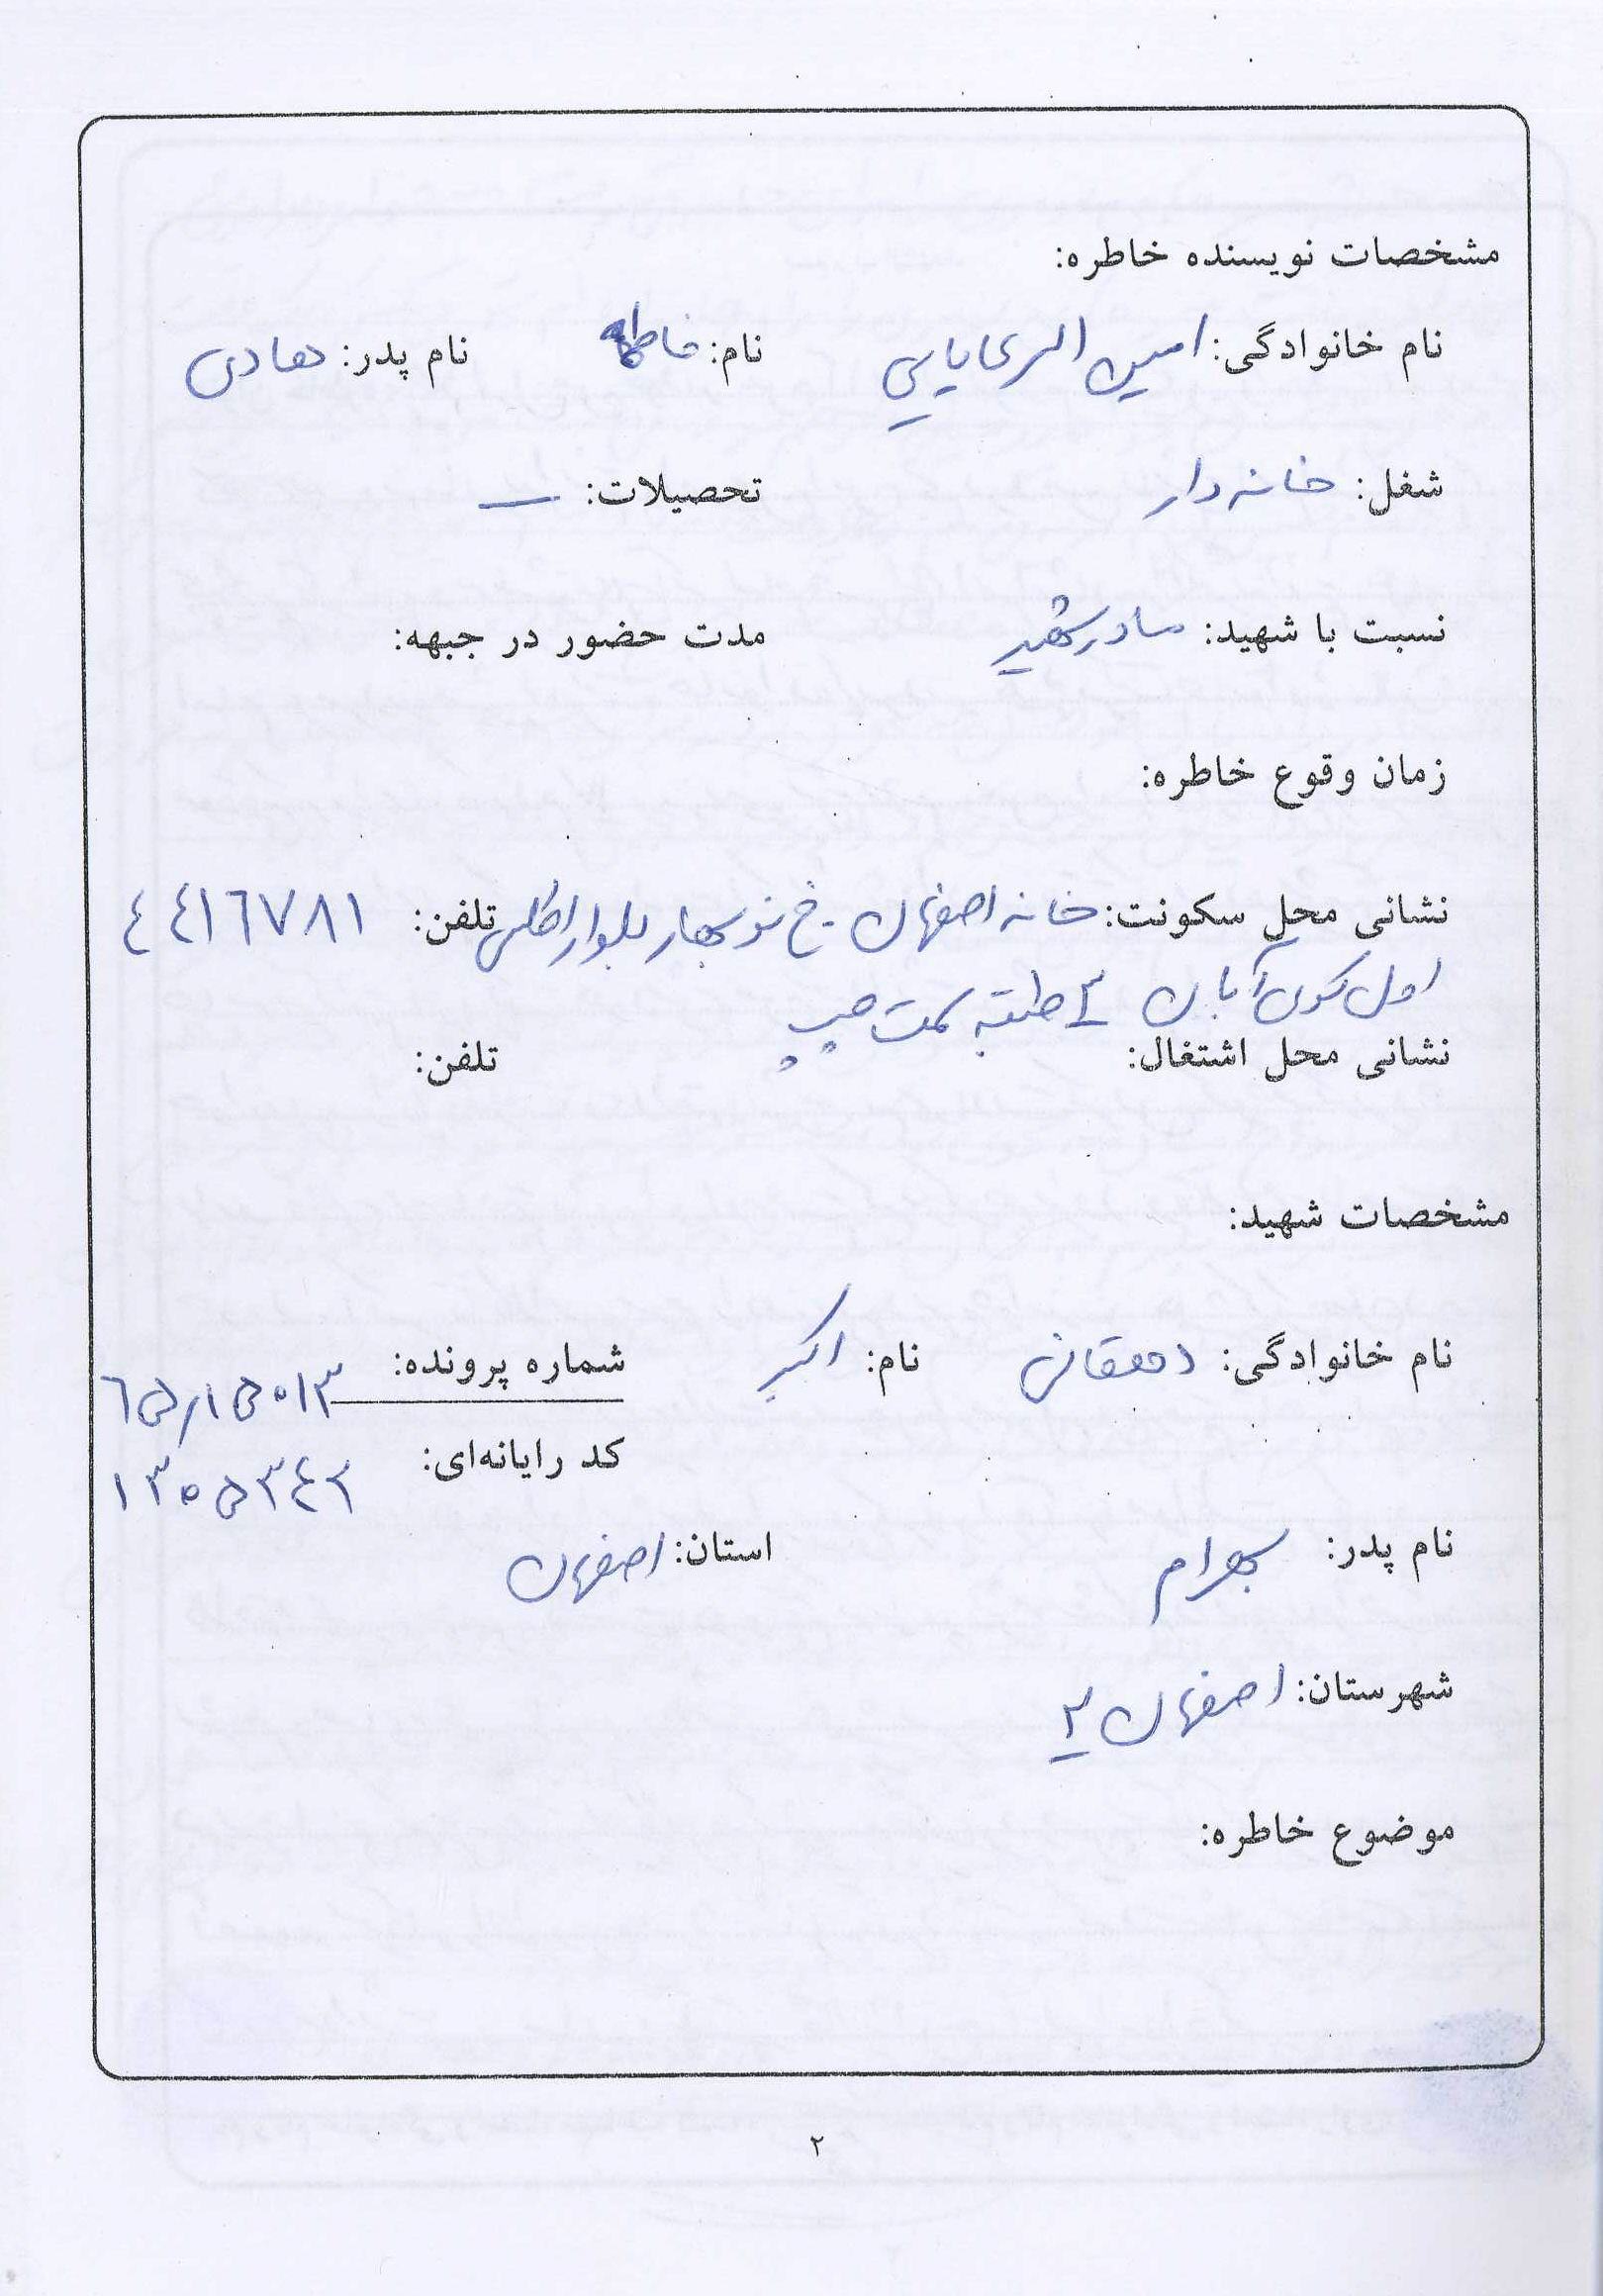 مشخصات نویسنده خاطره:
نام خانوادگی: امین الرعایایی نام: فاطمه نام پدر: هادی
شغل: خانه دار تحصیلات: ـ
نسبت با شهید: مادر شهید مدت حضور در جبهه:
زمان وقوع خاطره:
نشانی محل سکونت: خانه اصفهان - خ نوبهار بلوار تلفن: ٤٤١٦٧٨١
اول کوی آبان ٣ طبقه سمت چپ
نشانی محل اشتغال: تلفن:
مشخصات شهید:
نام خانوادگی: دهقانی نام: اکبر شماره پرونده: ٦٥/١٥٠١٣
کد رایانه‌ای: ١٣٠٥٣٤٢
نام پدر: بهرام استان: اصفهان
شهرستان: اصفهان ٢
موضوع خاطره:
٢